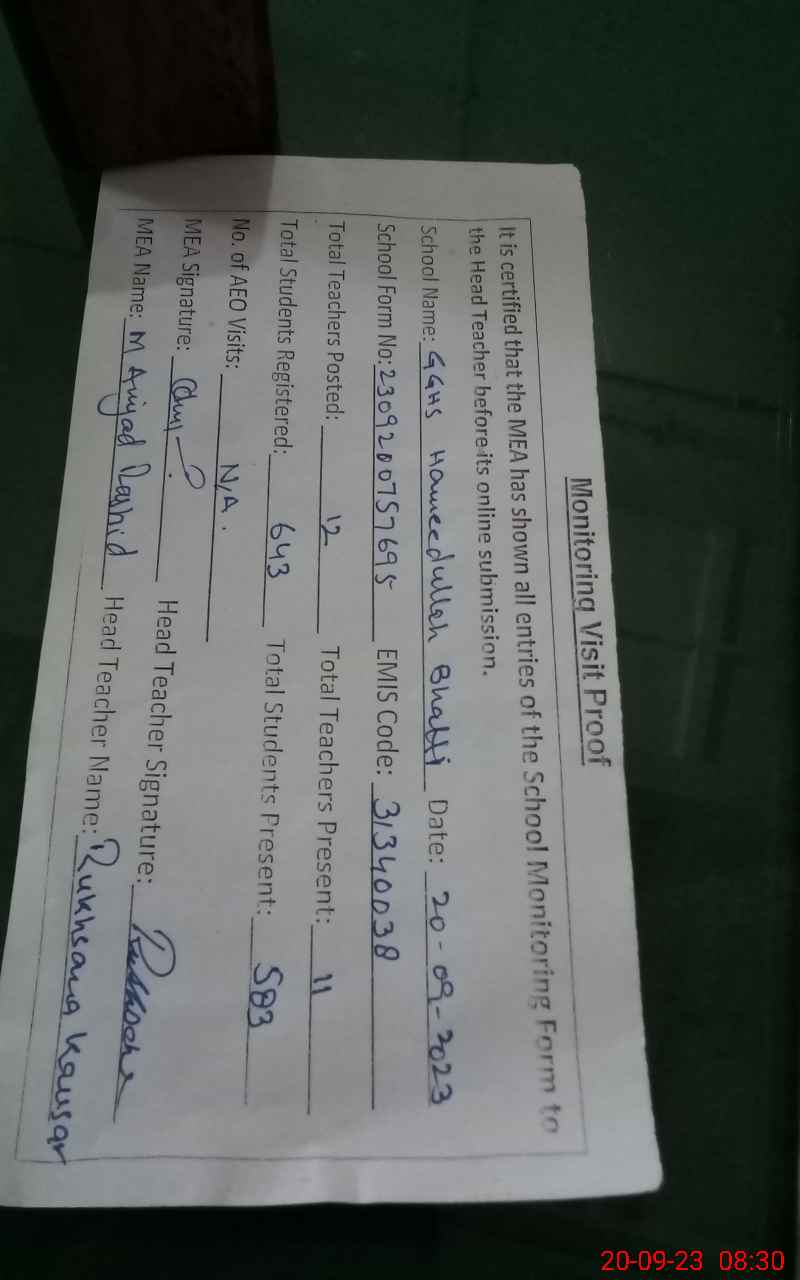 Monitoring Visit Proof
It is certified that the MEA has shown all entries of the School Monitoring Form to
the Head Teacher before its online submission.
School Name: GGHS Hameedullah Bhatti Date: 20-09-2023
School Form No: 230920075 7695 EMIS Code: 31340038
Total Teachers Posted: 12 Total Teachers Present: 11
Total Students Registered: 643 Total Students Present: 583
No. of AEO Visits: N/A.
MEA Signature: Head Teacher Signature:
MEA Name: M Amjad Rashid Head Teacher Name: Rukhsana Kausar
20-09-23 08:30